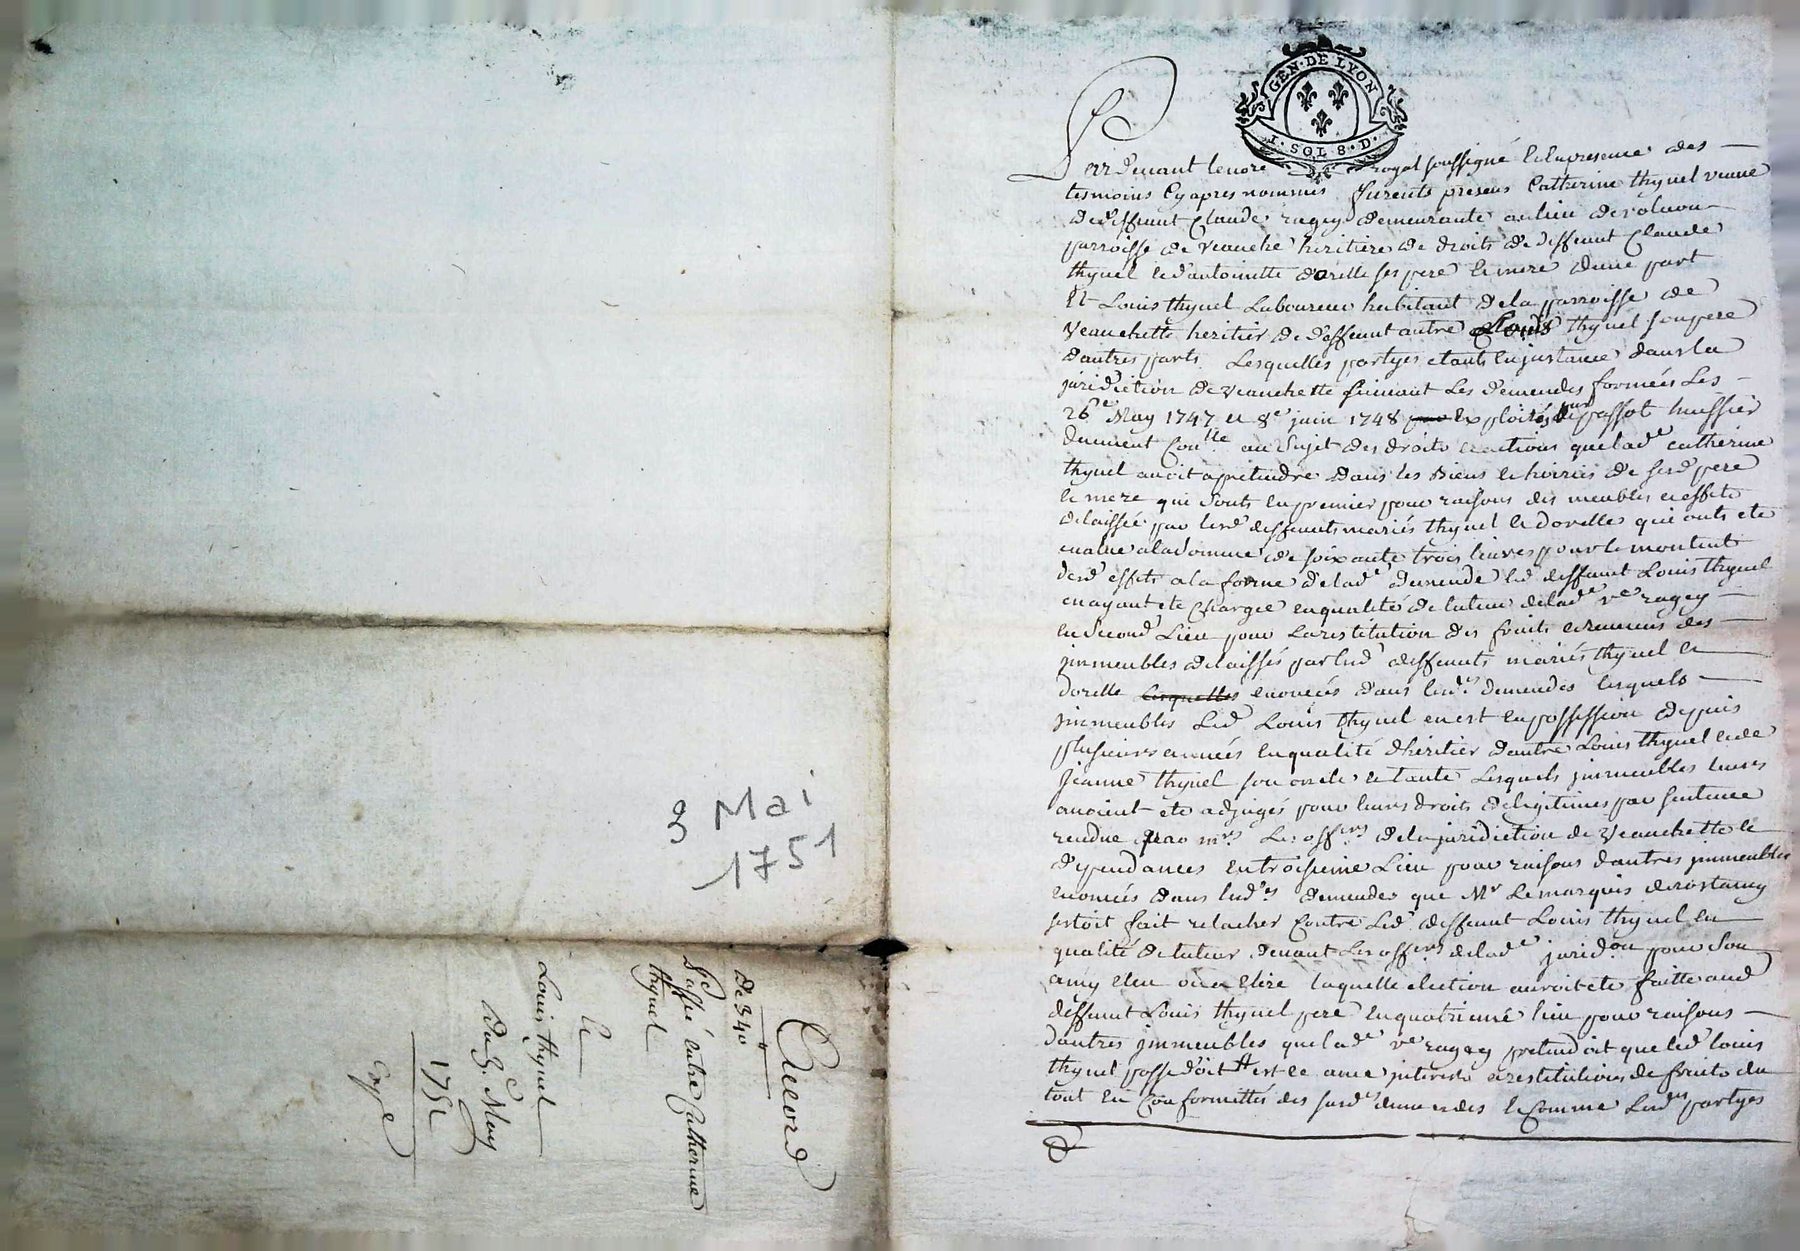 3 Mai
1751
Accord
de 340 tt
passé entre Catherine
thynel
Et
Louis thynel
Du 3e May
1751
Copie
GEN · DE LYON
1 · SOL 8 · D ·
Pardevant le no[re] royal soussigné et en presence des
tesmoins cy apres nommés furents presens Catherine thynel veuve
de deffunt Claude ragey demeurante au lieu de
parroisse de veauche heritiere de droits de deffunt Claude
thynel et d'antoinette dorelle ses pere et mere d'une part
Et Louis thynel Laboureur habitant de la parroisse de
Veauchette heritier de deffunt autre Louis thynel son pere
d'autres parts. Lesquelles partyes etants en instance dans la
juridiction de veauchette suivant Les demendes formées Les
26e May 1747 et 8e juin 1748 Exploités par passot huissier
duement Coullé au sujet des droits et actions que lade catherine
thynel avoit a pretendre dans les Biens et hoiries de sesd pere
et mere qui sonts en premier pour raisons des meubles et effets
delaissés par lesd deffunts mariés thynel et dorelles qui onts ete
evalué a la somme de soixante trois livres pour le montent
desd effets a la forme de lade demende led deffunt Louis thynel
en ayant ete Chargé en qualité de tuteur de lade ve ragey
en second Lieu pour La restitution des fruits et revenus des
jmmeubles delaissés par lesd deffunts mariés thynel et
dorelle enoncés dans lesdes demendes lesquels
jmmeubles Led Louis thynel en est en possession depuis
plusieurs années en qualité d'heritier d'autre Louis thynel et de
Jeanne thynel son oncle et tante Lesquels jmmeubles leurs
avoient ete adjugés pour leurs droits de legitimes par sentence
rendue par mrs Les offers de la juridiction de veauchette et
dependances en troisieme Lieu pour raisons d'autres jmmeubles
enoncés dans lesdes demendes que Mr Le marquis de rostaing
s'estoit fait relacher Contre Led deffunt Louis thynel en
qualité de tuteur devant Les offers de lade juridon pour son
amy eleu ou a elire laquelle election auroit ete faitte aud
deffunt Louis thynel pere en quatrieme lieu pour raisons
d'autres jmmeubles que lade ve ragey pretendoit que led louis
thynel possedoit et ce avec interests et restitutions de fruits du
tout En Conformittés des susdes demendes et Comme Lesdes partyes